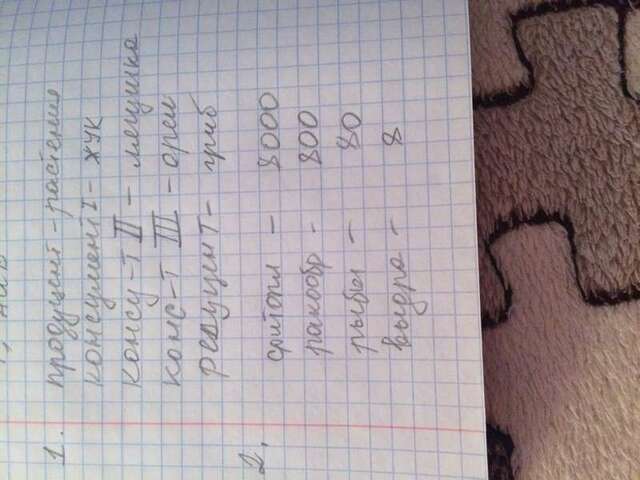 1. продуцент - растения
консумент I - жук
консу-т II - лягушка
конс-т III - орел
редуцент - гриб
2. фитопл - 8000
ракообр - 800
рыбы - 80
выдра - 8